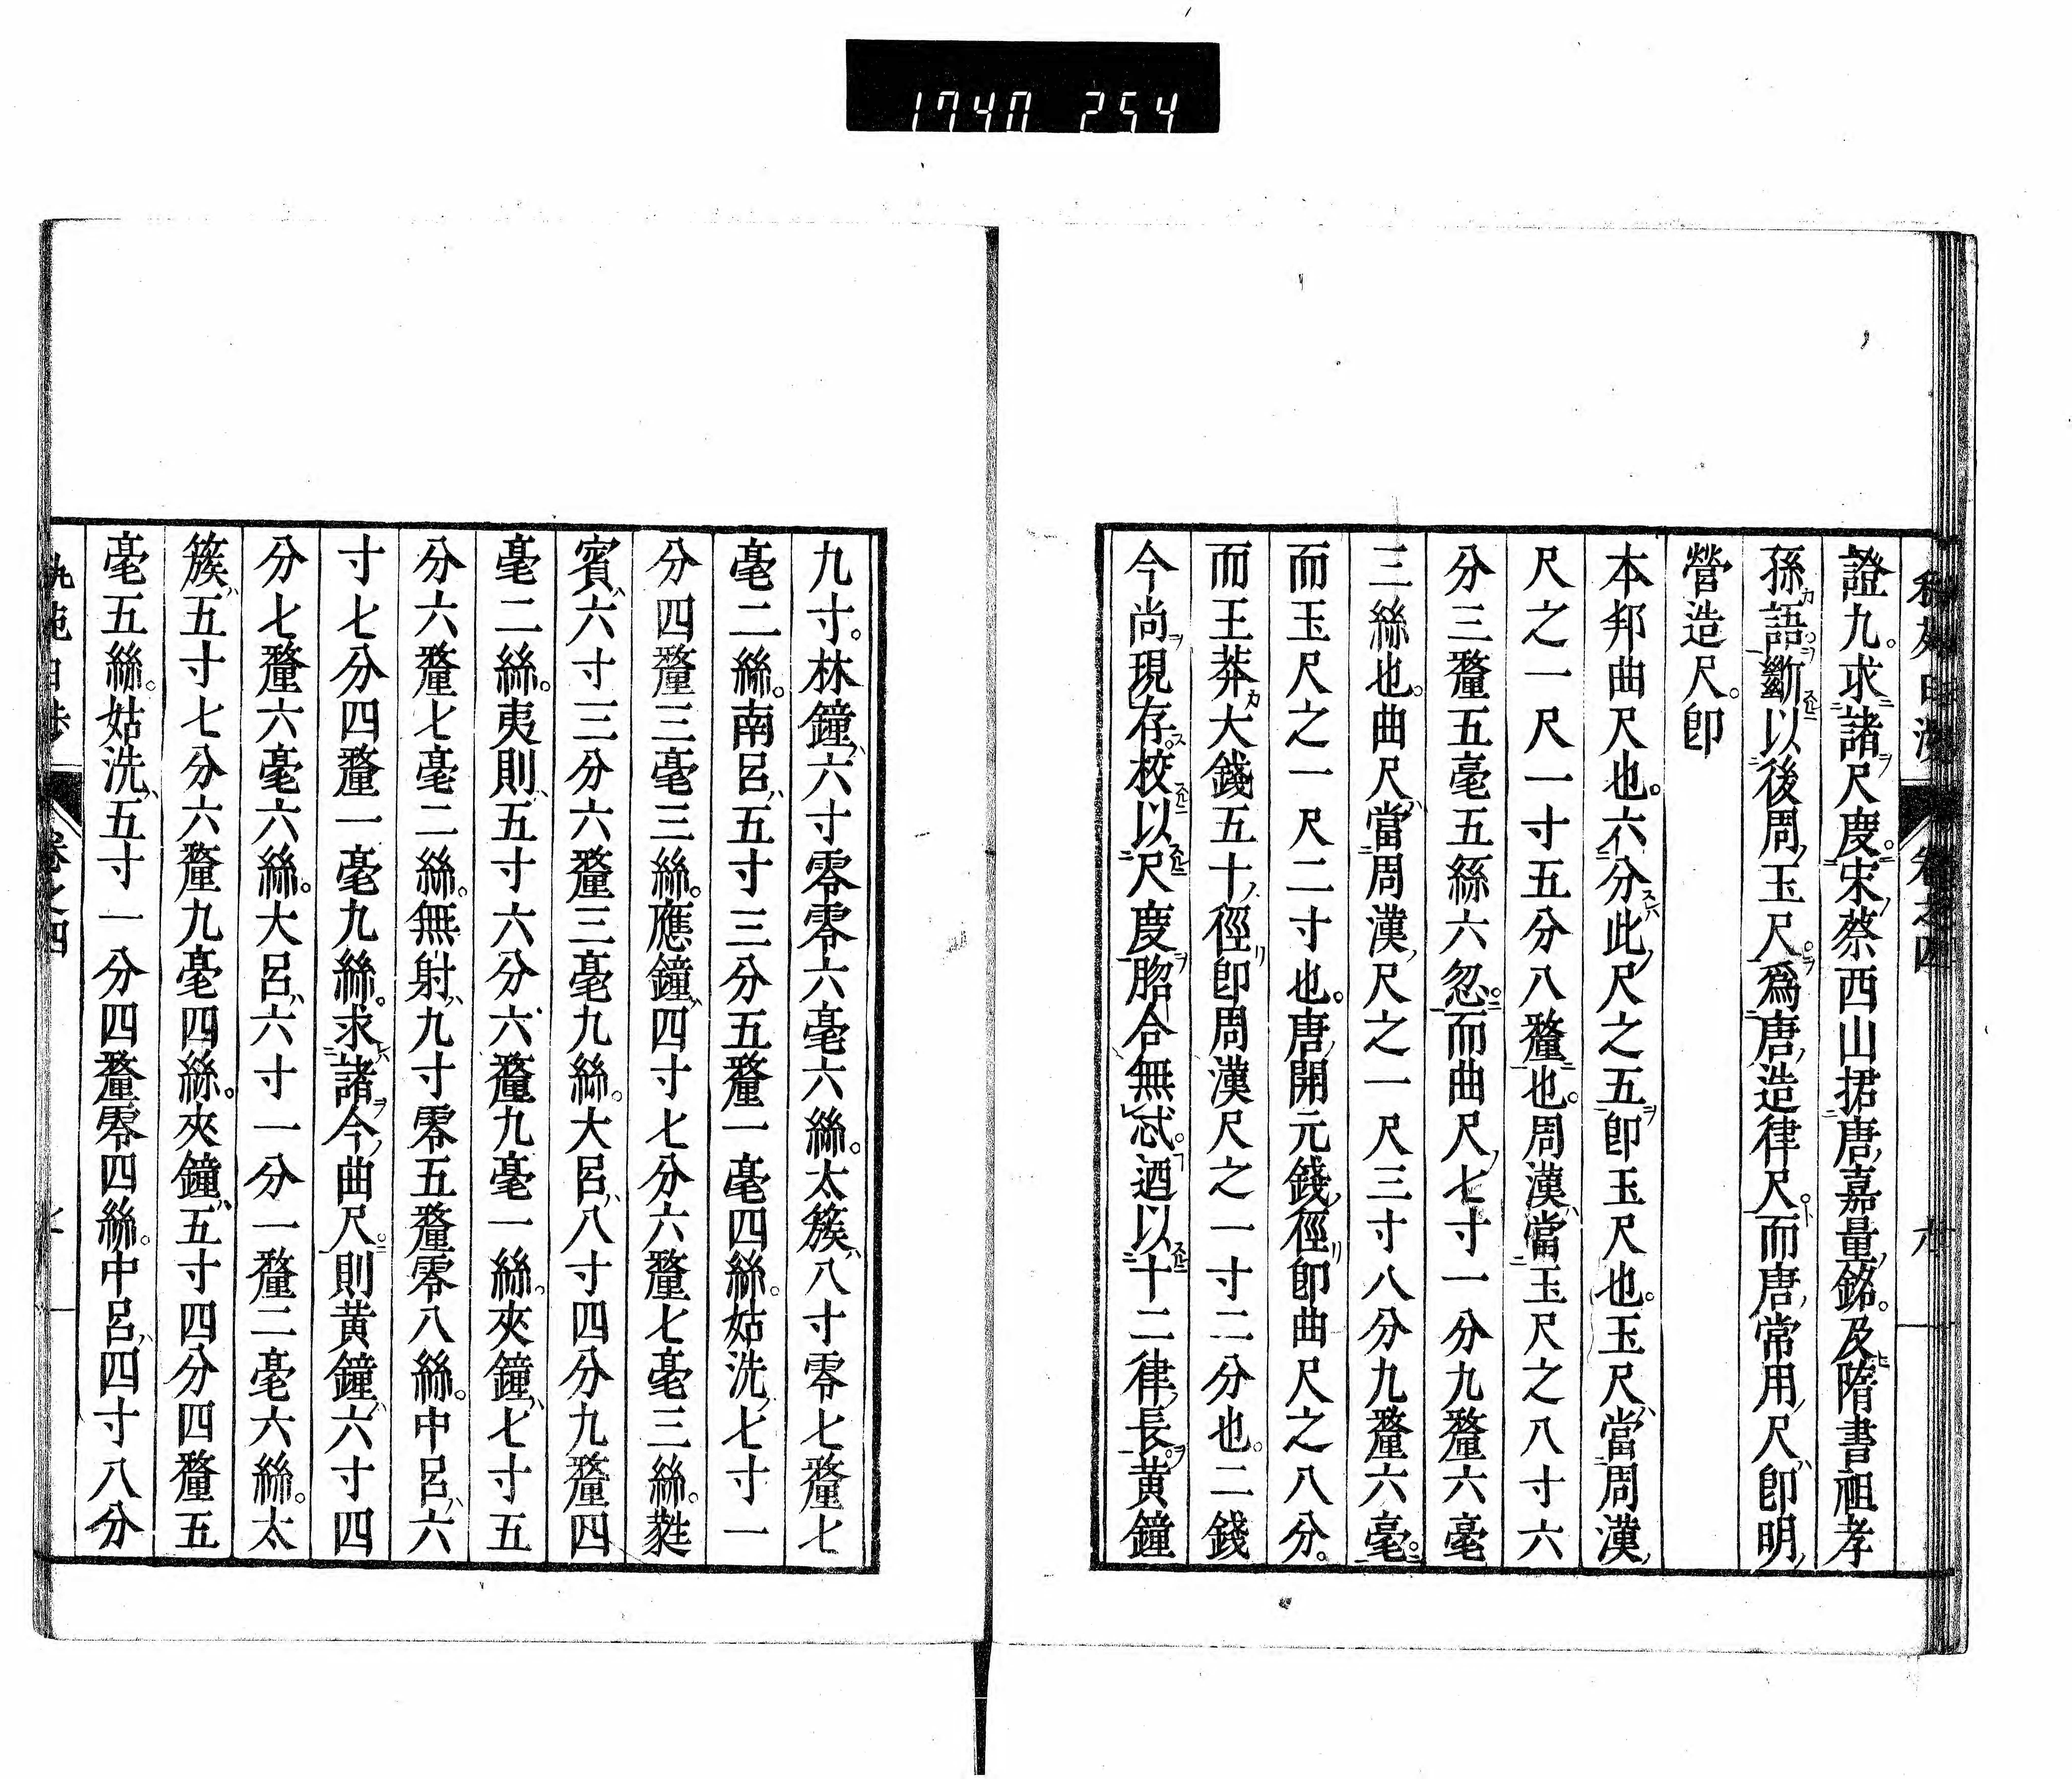 1740 254
證九。求諸尺度。宋蔡西山捃唐嘉量銘。及隋書祖孝
孫語。斷以後周玉尺。爲唐造律尺。而唐常用尺卽明
營造尺。卽
本邦曲尺也。六分此尺之五卽玉尺也。玉尺當周漢
尺之一尺一寸五分八釐也。周漢當玉尺之八寸六
分三釐五毫五絲六忽。而曲尺七寸一分九釐六毫
三絲也。曲尺當周漢尺之一尺三寸八分九釐六毫。
而玉尺之一尺二寸也。唐開元錢徑卽曲尺之八分。
而王莽大錢五十徑卽周漢尺之一寸二分也。二錢
今尚現存。校以尺度。脗合無忒。迺以十二律長。黃鐘
九寸。林鐘六寸零零六毫六絲。太簇八寸零七釐七
毫二絲。南呂五寸三分五釐一毫四絲。姑洗七寸一
分四釐三毫三絲。應鐘四寸七分六釐七毫三絲。蕤
賓六寸三分六釐三毫九絲。大呂八寸四分九釐四
毫二絲。夷則五寸六分六釐九毫一絲。夾鐘七寸五
分六釐七毫二絲。無射九寸零五釐零八絲。中呂六
寸七分四釐一毫九絲。求諸今曲尺。則黃鐘六寸四
分七釐六毫六絲。大呂六寸一分一釐二毫六絲。太
簇五寸七分六釐九毫四絲。夾鐘五寸四分四釐五
毫五絲。姑洗五寸一分四釐零四絲。中呂四寸八分
卷之四